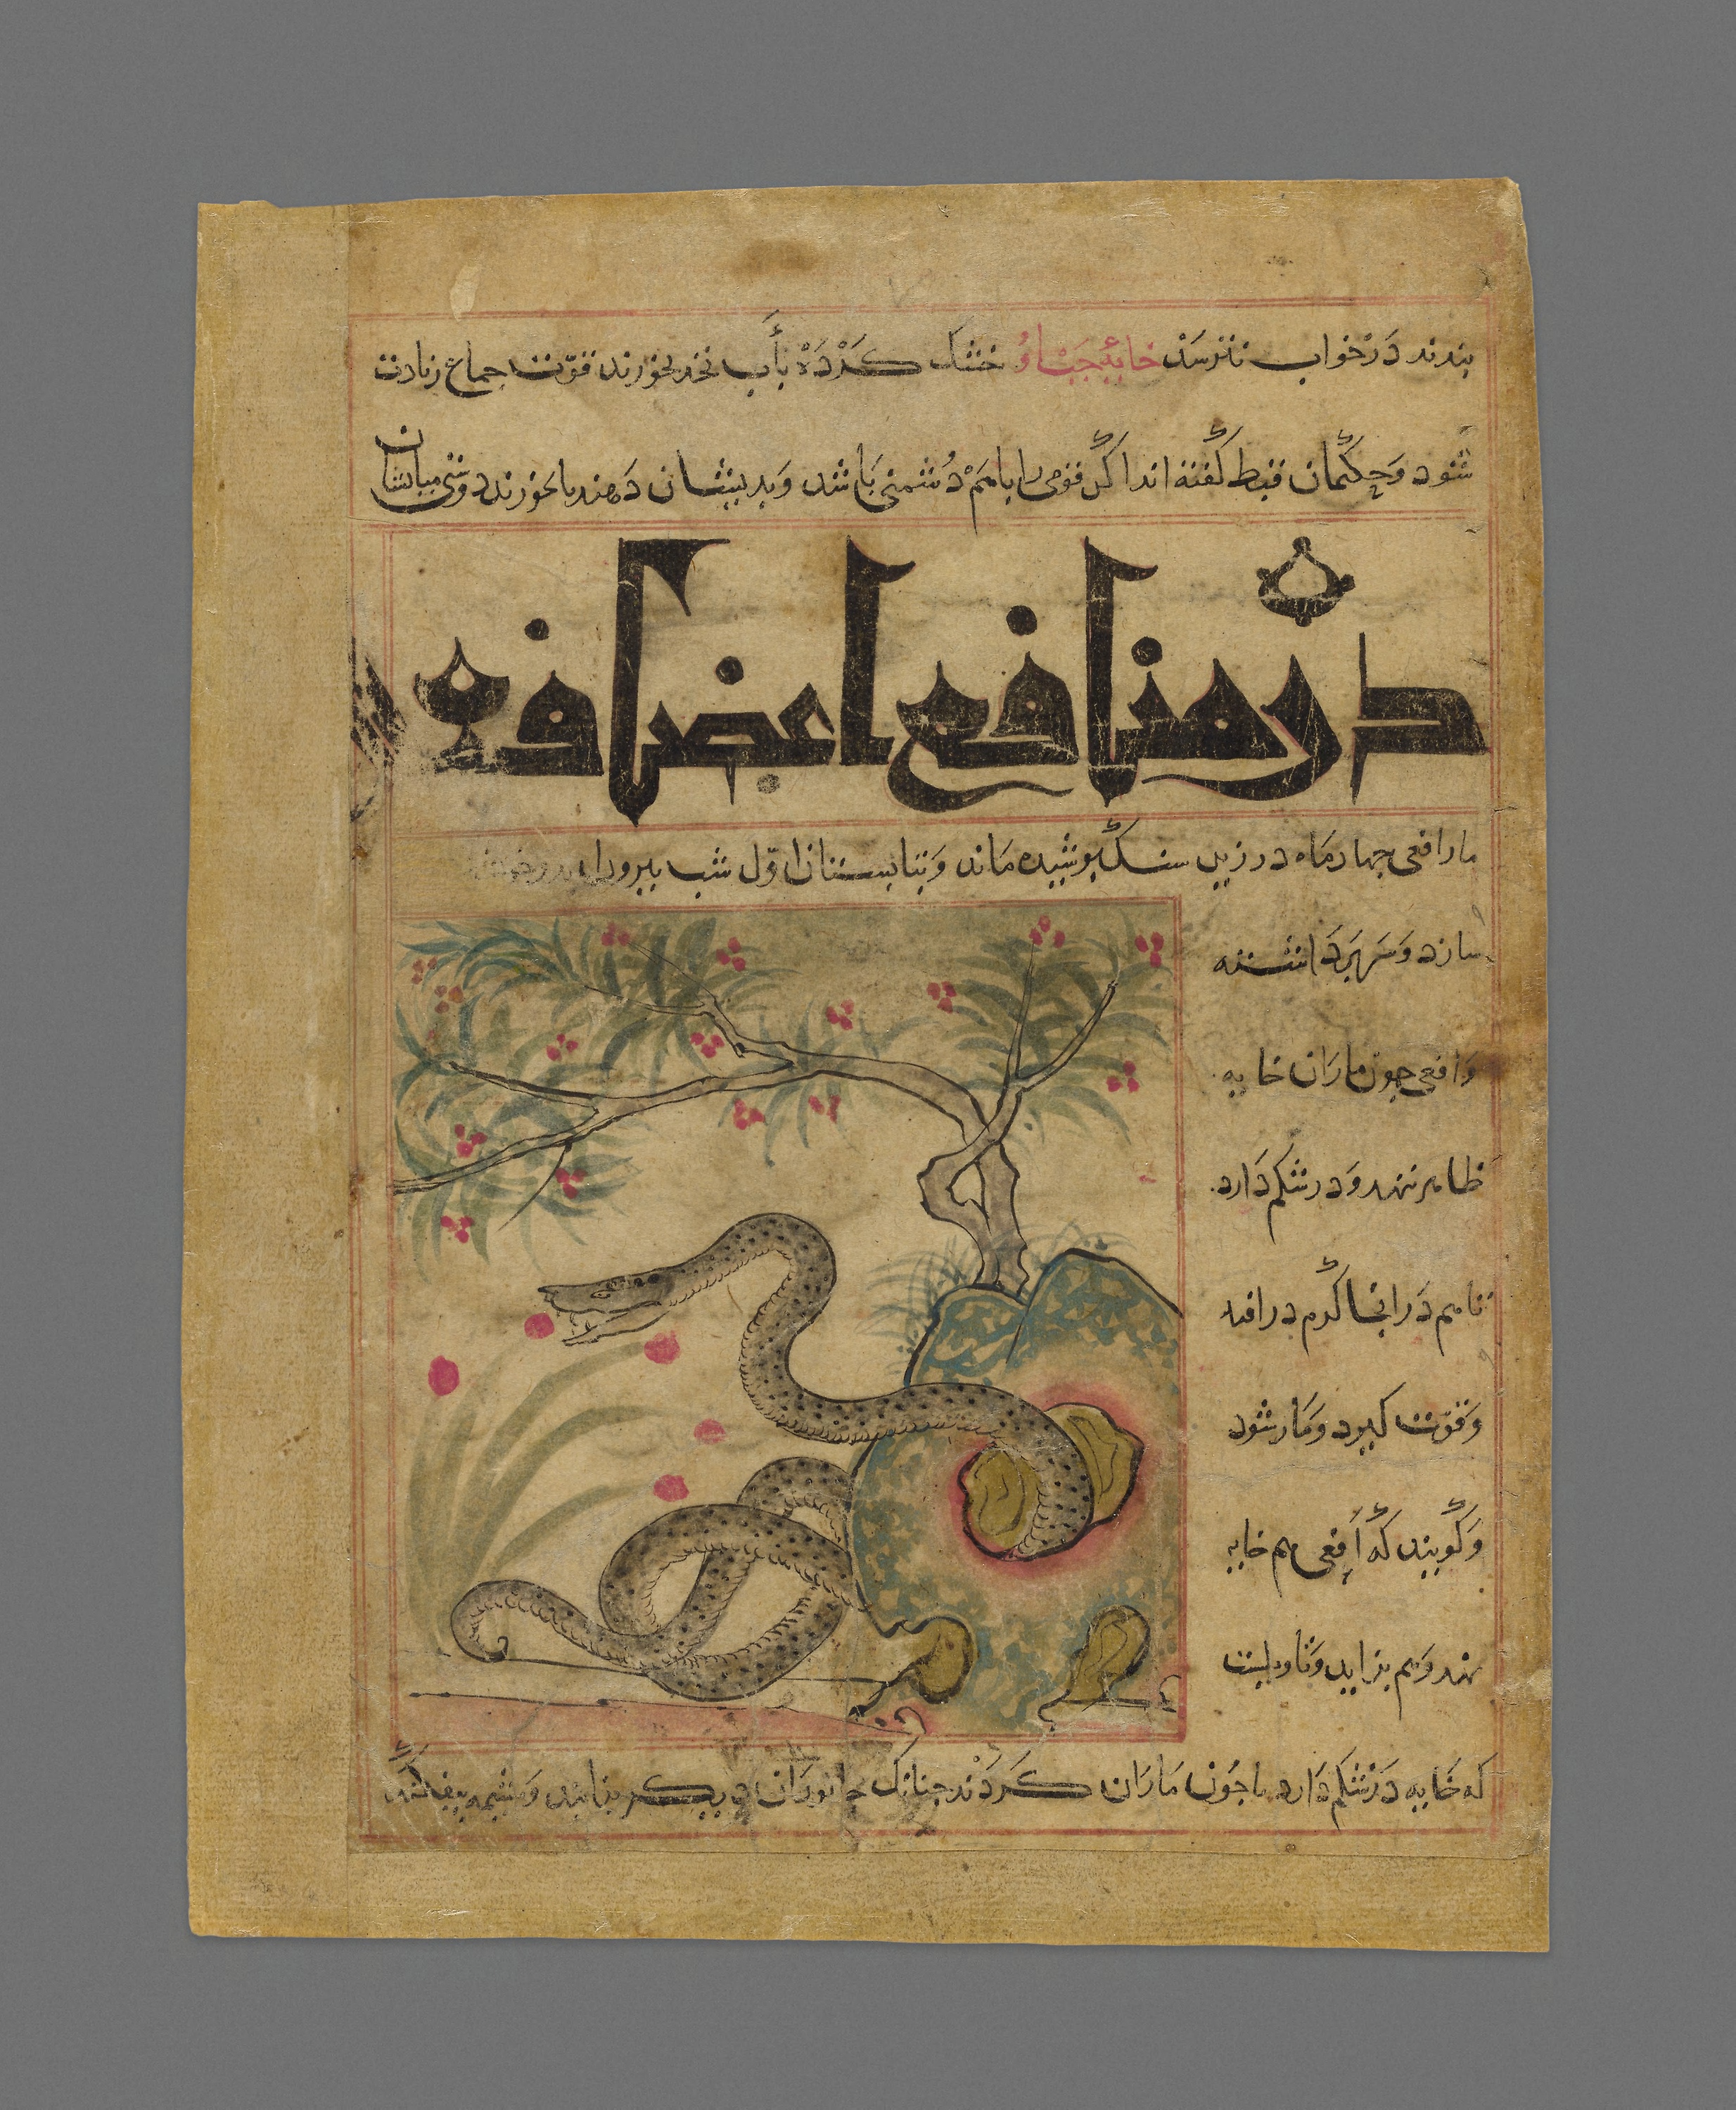 بندند در خواب نترسد خایۀ حباء خشک کرده بآب نخذ بخورند قوّت جماع زیادت
شود و حکیمان قبط کفته اند اکر قومی را باهم دشمنی باشد و بدیشان دهند تا بخورند دوستی میانشان
در منافع اعضا
مار افعی جهار ماه در زیر سنک پوشیده ماند و بتابستان اول شب بیرون آید و
سازد و سر برداشته
و افعی جون ماران خایه
ظاهر ننهد و در شکم دارد
تا هم در انجا کرم در افتد
و قوّت کیرد و مار شود
و کویند که افعی هم خایه
نهد و هم بزاید
که خایه در شکم دارد تا جون ماران کردند جنانک جانوران دیکر بزایند و مشیمه بیفکند